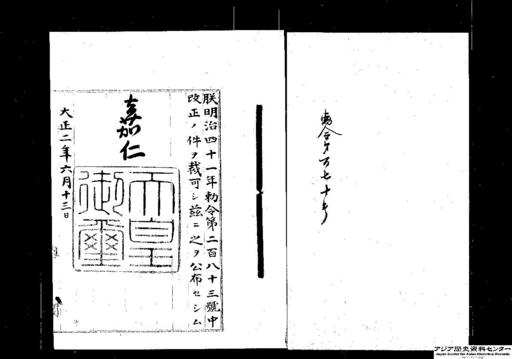 勅令第百七十号
朕明治四十一年勅令第二百八十三號中
改正ノ件ヲ裁可シ茲ニ之ヲ公布セシム
嘉仁
天皇
御璽
大正二年六月十三日
アジア歴史資料センター
Japan Center for Asian Historical Records